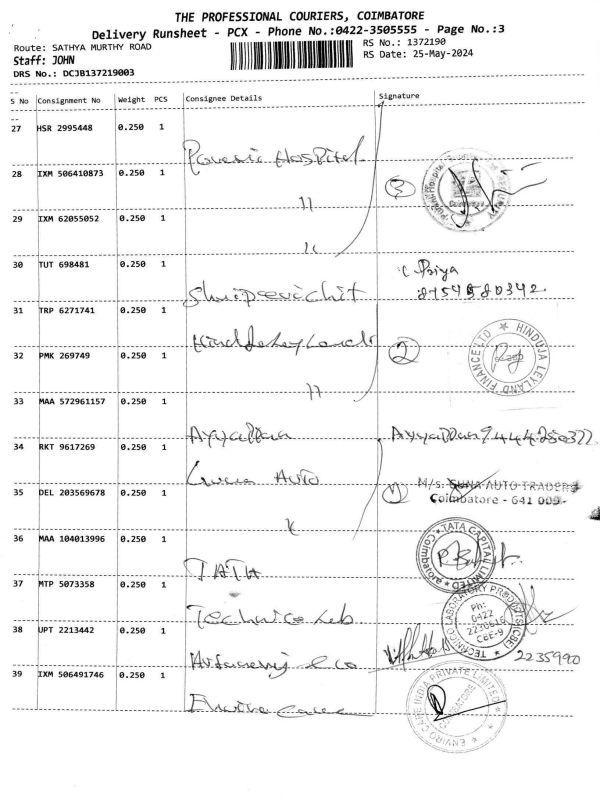 THE PROFESSIONAL COURIERS, COIMBATORE
Delivery Runsheet - PCX - Phone No.:0422-3505555 - Page No.:3
Route: SATHYA MURTHY ROAD
RS No.: 1372190
Staff: JOHN
RS Date: 25-May-2024
DRS No.: DCJB137219003
S No Consignment No Weight PCS Consignee Details Signature
27 HSR 2995448 0.250 1
Hospital
28 IXM 506410873 0.250 1
"
3
29 IXM 62055052 0.250 1
"
30 TUT 698481 0.250 1
Priya
8754580342
31 TRP 6271741 0.250 1
2
HINDUJA LEYLAND FINANCE LTD
32 PMK 269749 0.250 1
"
33 MAA 572961157 0.250 1
Ayyappan
Ayyappan
34 RKT 9617269 0.250 1
Auto
1
M/s. SUNA AUTO TRADERS
Coimbatore - 641 009.
35 DEL 203569678 0.250 1
"
36 MAA 104013996 0.250 1
TATA
TATA CAPITAL LIMITED
Coimbatore
37 MTP 5073358 0.250 1
Technico Lab
TECHNICO LABORATORY PRODUCTS (CBE)
Ph:
0422
2230616
CBE-9
38 UPT 2213442 0.250 1
& co
2235990
39 IXM 506491746 0.250 1
Enviro care
ENVIRO CARE INDIA PRIVATE LIMITED
COIMBATORE